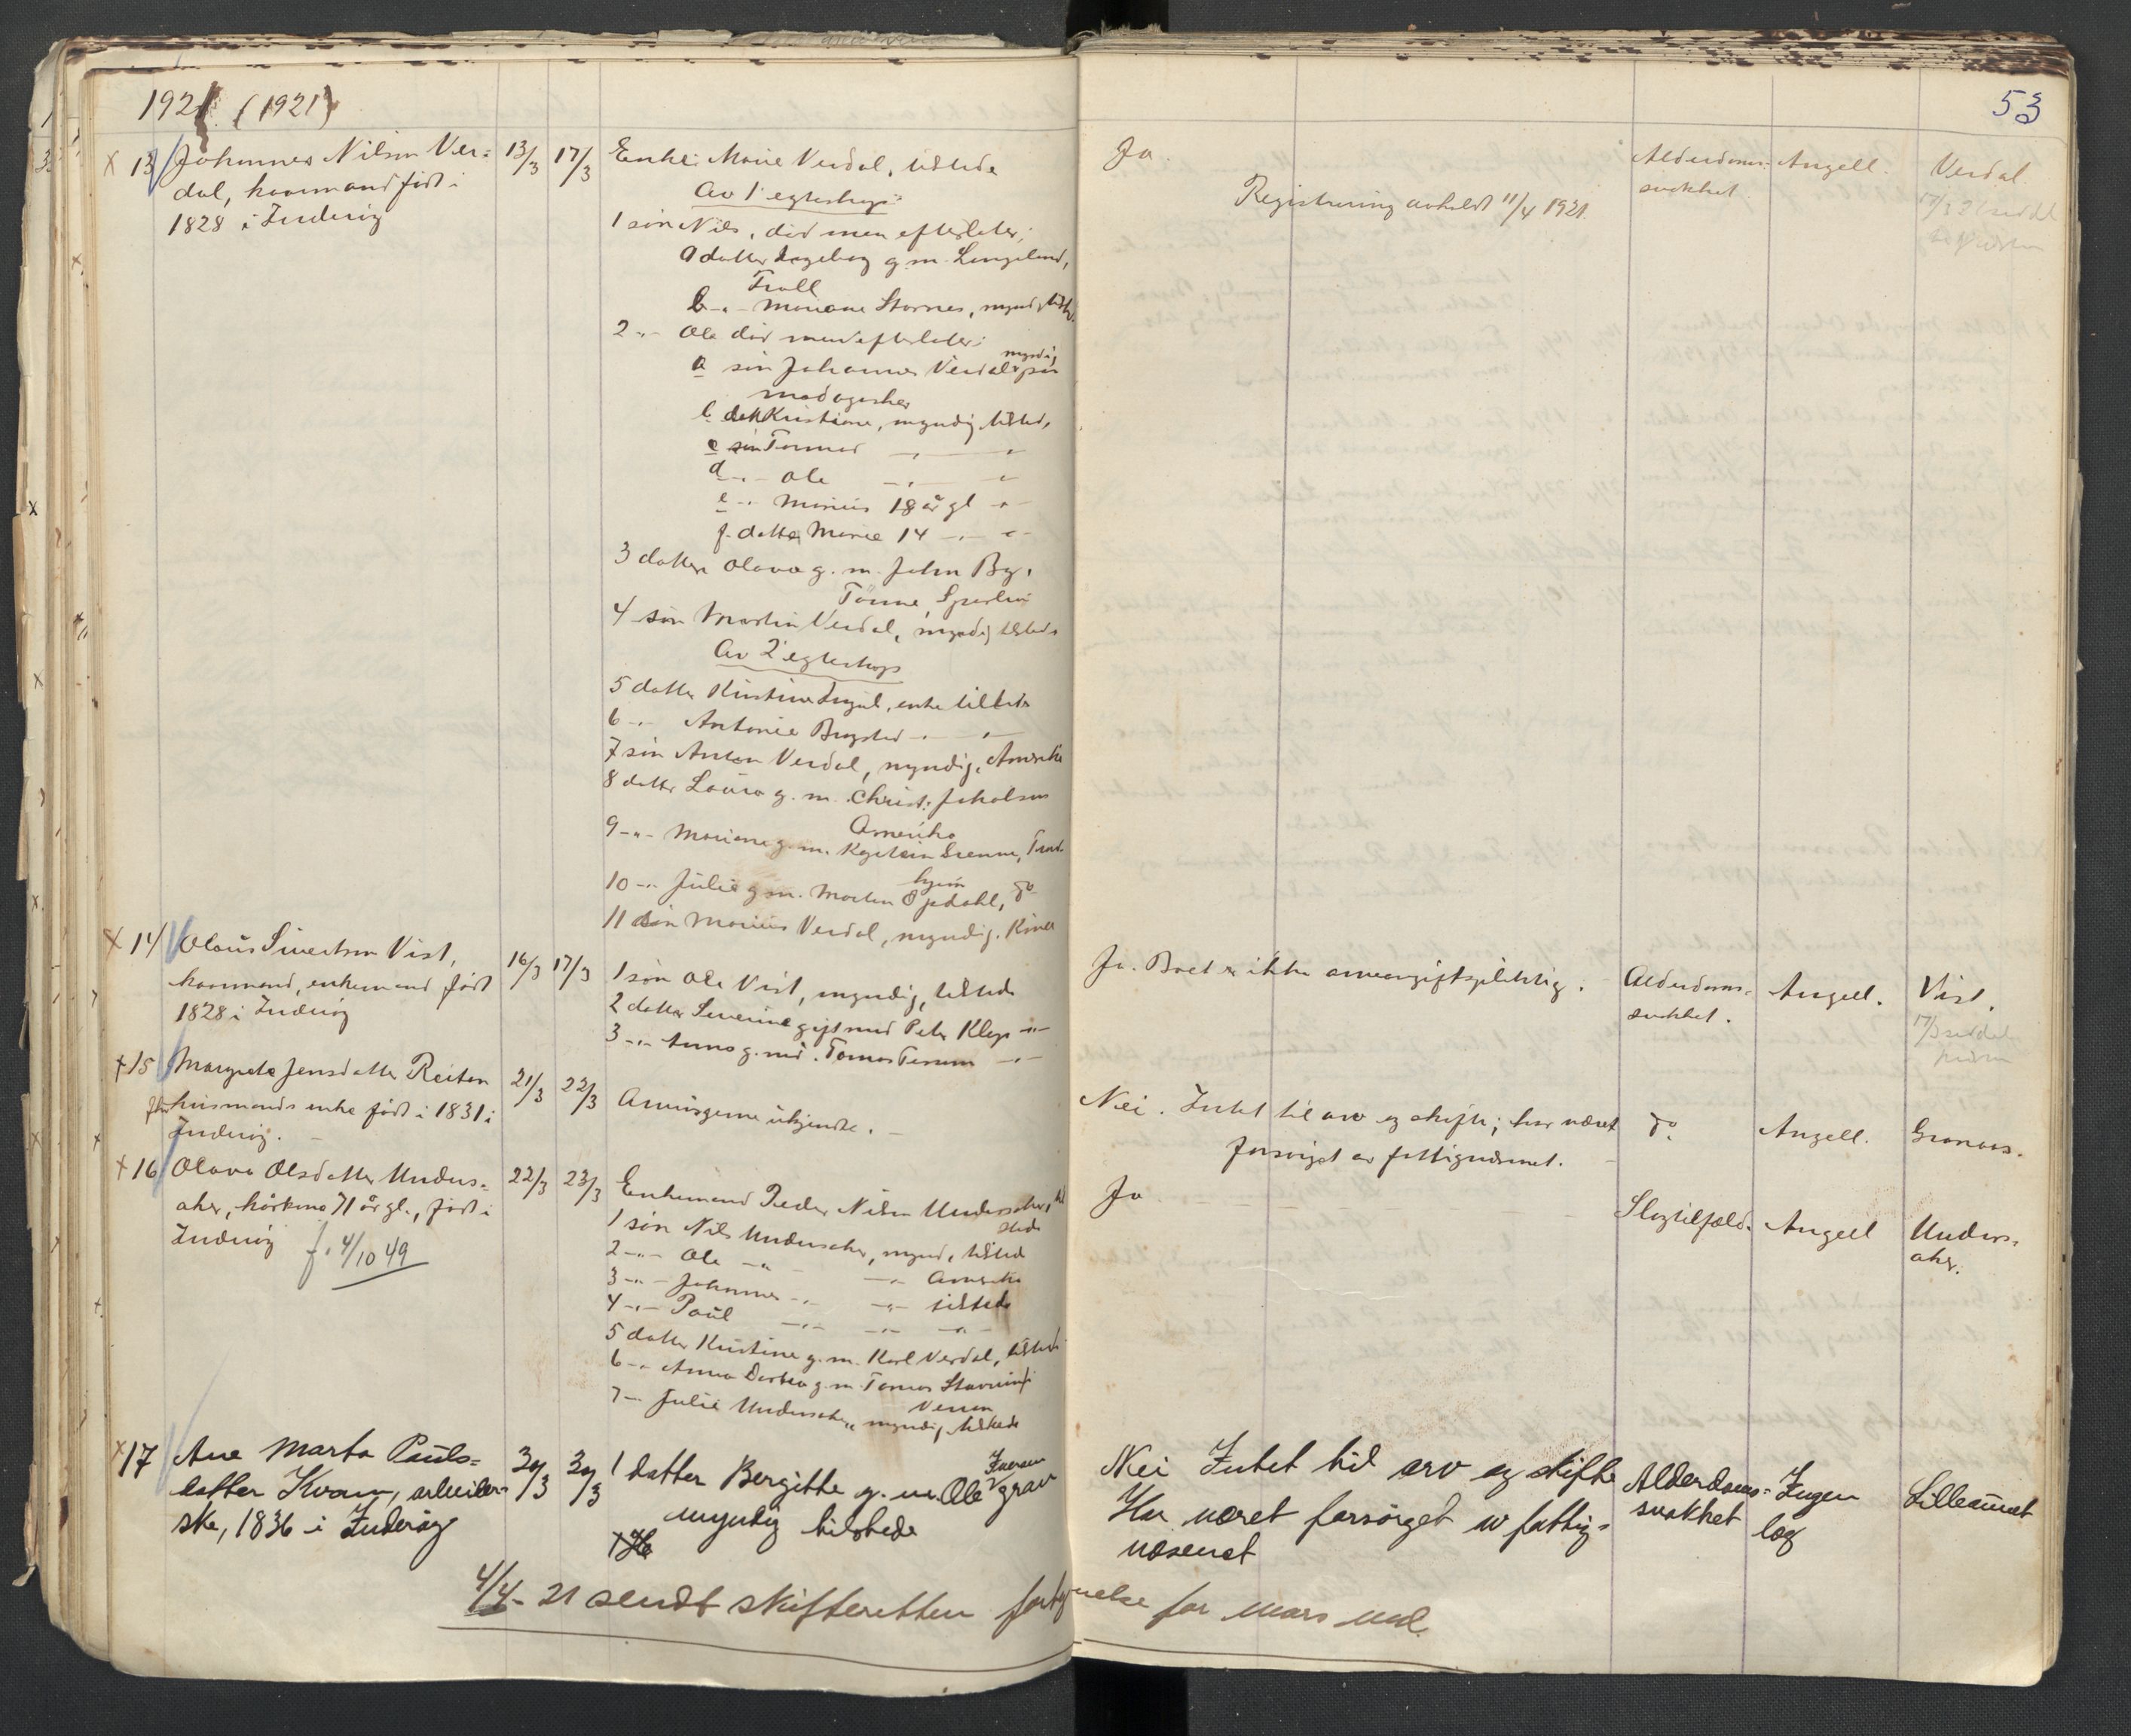 1921 (1921)
53
13 Johannes Nilsen Ver=
dal, kaarmand født i
1828 i Inderøy
13/3 17/3
Enke: Marie Verdal, tilstede
Av 1' egteskap:
1 søn Nils, død men efterlater;
a datter Ingeborg g. m.
b -"- Mariane Stornes, myndig, tilst.
2 -"- Ole død men efterlater:
a søn Johannes Verdal myndig, paa
Madagaskar
b dat. Kristiane, myndig tilsted,
c søn Tormod -"- "
d -"- Ole -"- "
e -"- Marius 18 år gl -"-
f. datter Marie 14 -"- -"-
3 datter Olava g. m. John By,
4 søn Martin Verdal, myndig tilstede
Av 2' egteskap
5 datter Kristine enke tilstede
6 -"- Antonie -"- "
7 søn Anton Verdal, myndig, Amerika
8 datter Laura g. m. Christ: Jakobsen
Amerika
9 -"- Mariane g. m. Trond-
hjem
10 -"- Julie g. m. Morten Opdahl, do
11 søn Marius Verdal, myndig. Kina
Ja.
Registrering avholdt 11/4 1921.
Alderdoms-
svakhet.
Angell.
Verdal
14 Olaus Sivertsen Vist,
kaarmand, enkemand født
1828 i Inderøy
16/3 17/3
1 søn Ole Vist, myndig, tilstede
2 datter Severine gift med Peter Klep -"-
3 -"- Anna g. med. Tomas -"-
Ja. Boet er ikke arveavgiftspliktig.
Alderdoms-
svakhet.
Angell.
Vist.
15 Margrete Jensdatter Reiten
husmands enke født i 1831 i
Inderøy.
21/3 22/3
Arvingerne ukjendte.
Nei. Intet til arv og skifte; har været
forsørget av fattigvæsenet.
do
Angell.
Granaas.
16 Olava Olsdatter Unders=
aker, kårkone 71 år gl., født i
Inderøy
f. 4/10 49
22/3 23/3
Enkemand Peder Nilsen Undersaker, til
stede
1 søn Nils Undersaker, mynd, tilsted
2 -"- Ole -"- -"- Amerika
3 -"- Johannes -"- -"- tilstede
4 -"- Paul -"- -"- -"-
5 datter Kristine g. m. Karl Verdal, tilstede
6 -"- Anna Dortea g. m. Tomas
7 -"- Julie Undersaker, myndig, tilstede
Ja
Slagtilfæld.
Angell
Unders=
aker.
17 Ane Marta Pauls=
datter Kvam, arbeider-
ske, 1836 i Inderøy
30/3 30/3
1 datter Bergitte g. m. Ole
myndig tilstede
Nei Intet til arv og skifte
Har været forsørget av fattig-
væsenet
Alderdoms-
svakhet
Ingen
læg
Lilleaunet
4/4-21 sendt skifteretten fortegnelse for mars md.